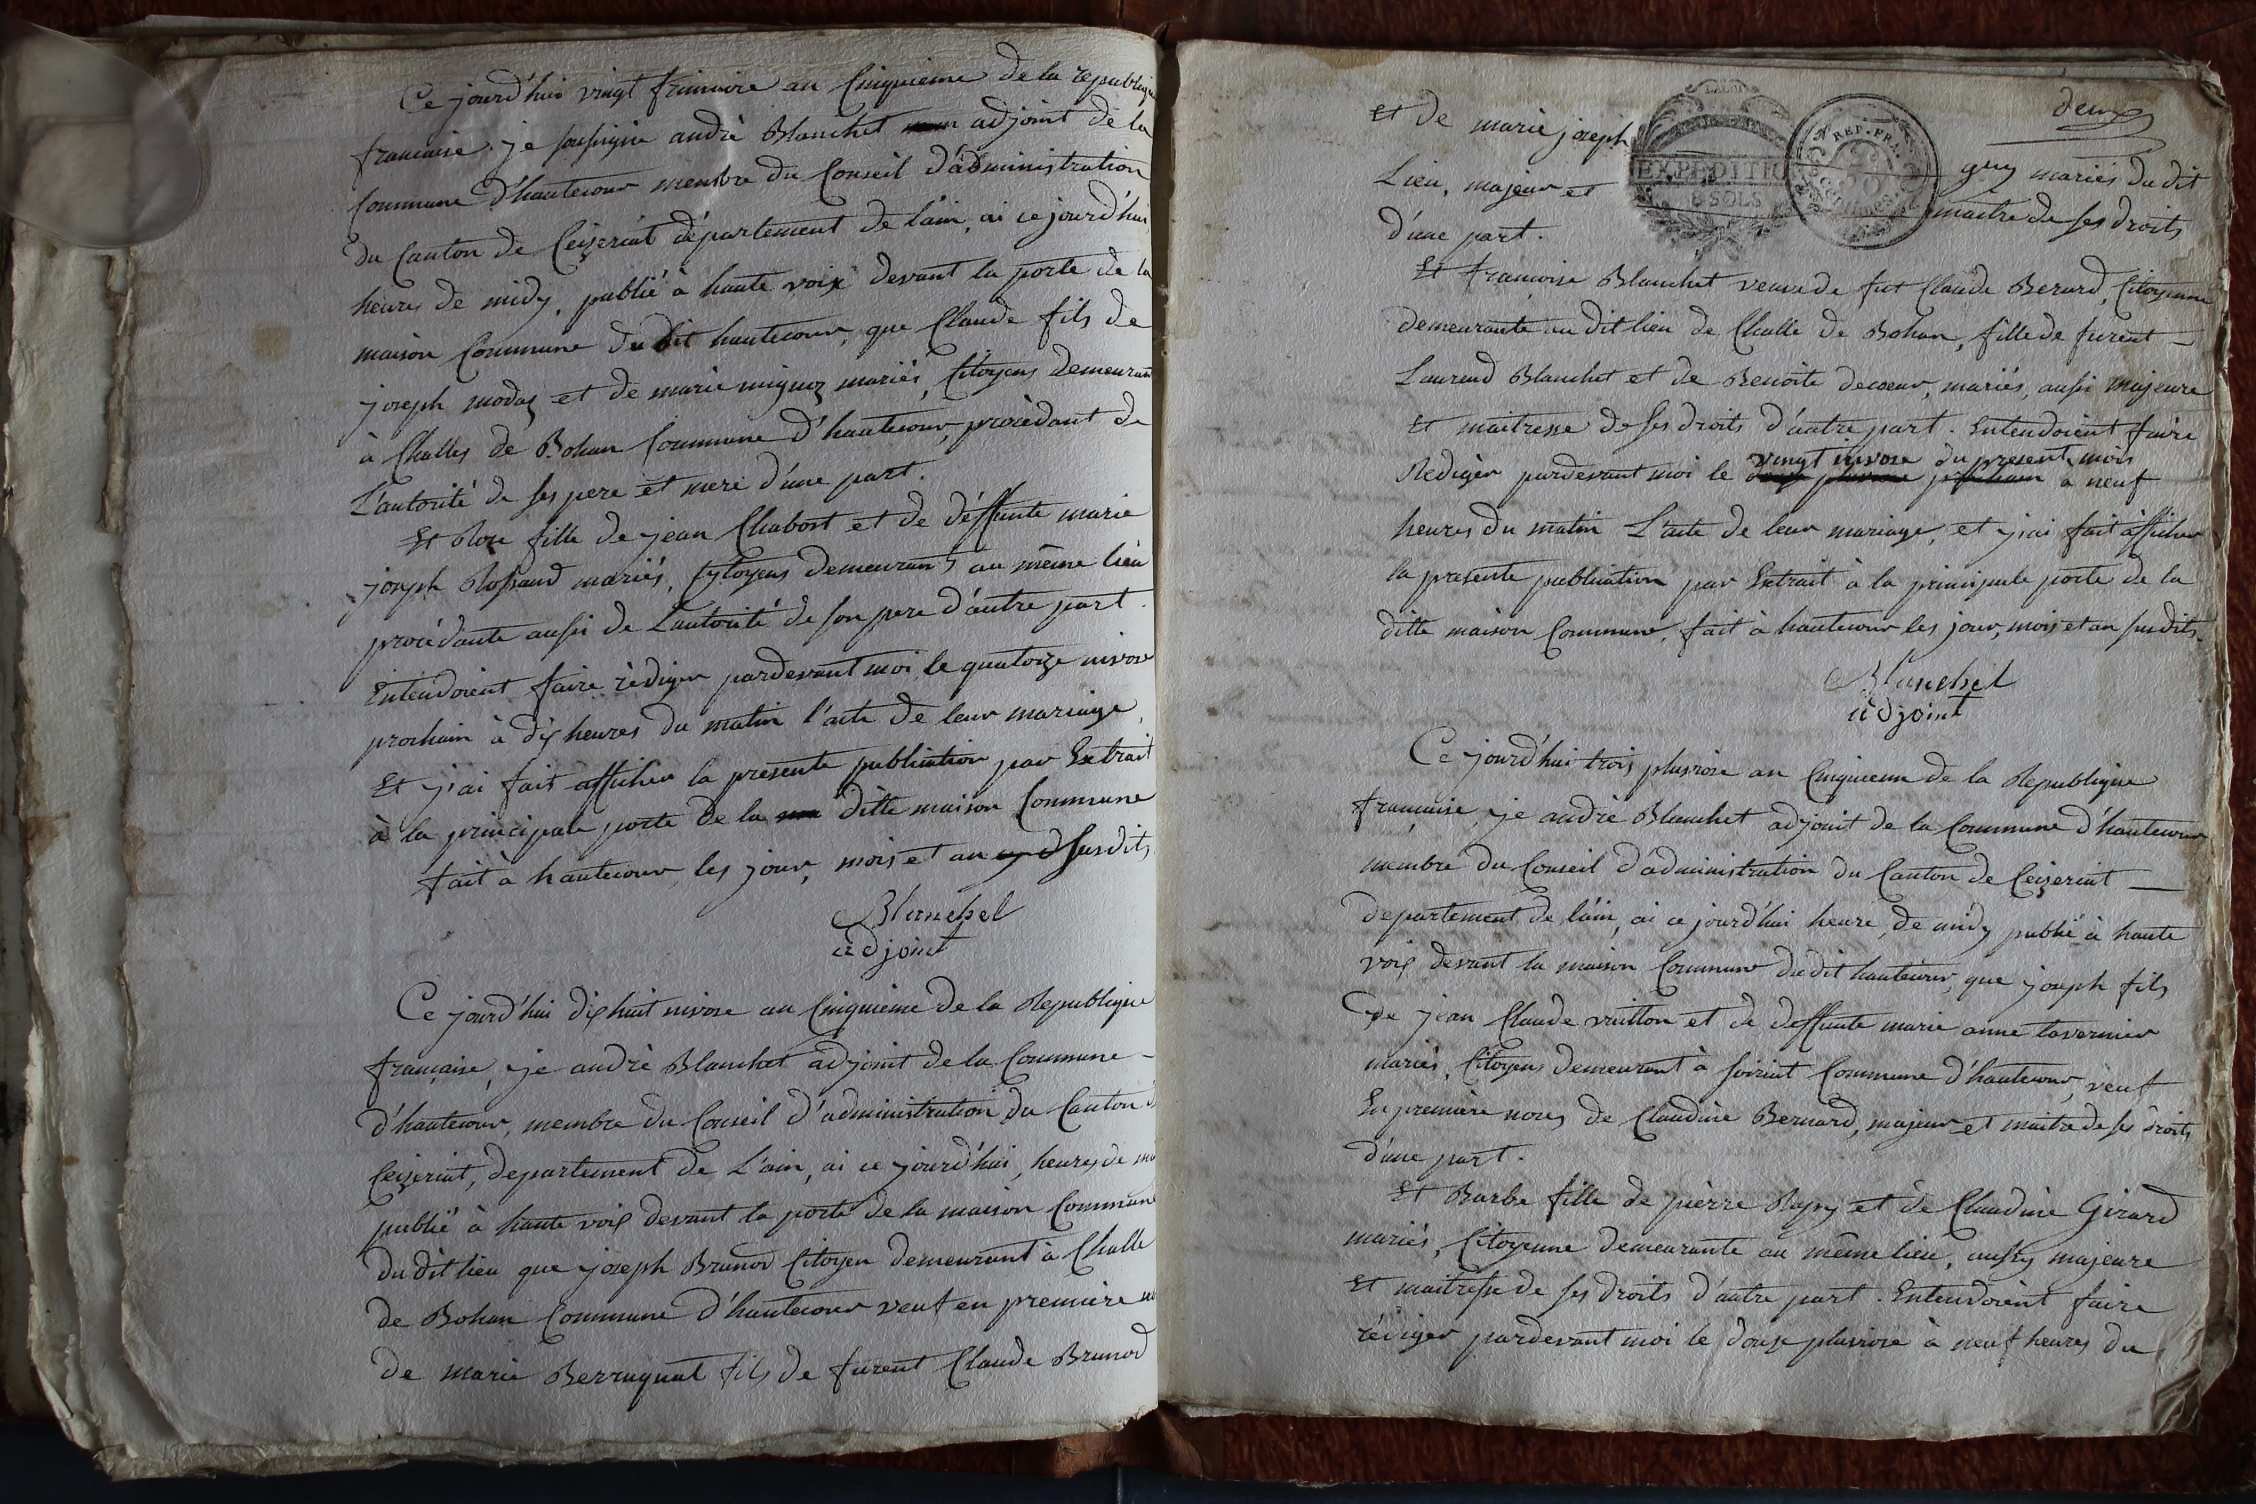 Ce jourd'hui vingt frimaire an Cinquieme de la republique
francaise. je soussigné andré Blanchet adjoint de la
Commune d'hautecour membre du Conseil d'administration
du Canton de Ceizeriat département de l'ain, ai ce jourd'hui
heures de midy, publié à haute voix devant la porte de la
maison Commune du dit hautecour, que Claude fils de
joseph modas et de marie mignoz mariés, Citoyens demeurant
à Challes de Bohan Commune d'hautecour, procèdant de
L'autorité de ses pere et mere d'une part.
Et Rose fille de jean Chabost et de déffunte marie
joseph Rossand mariés, Cytoyens demeurants au même lieu
procédante aussi de L'autorité de son pere d'autre part.
Entendoient faire rèdiger pardevant moi le quatorze nivose
prochain à dix heures du matin l'acte de leur mariage,
Et j'ai fait afficher la presente publication par Extrait
à la principale porte de la ditte maison Commune
fait à hautecour, les jour, mois et an susdits.
Blanchet
adjoint
Ce jourd'hui dixhuit nivose an Cinquieme de la Republique
française, je andrè Blanchet adjoint de la Commune
d'hautecour, membre du Conseil d'administration du Canton
Ceizeriat, departement de L'ain, ai ce jourd'hui, heures de
publié à haute voix devant la porte de la maison Commune
du dit lieu que joseph Brunod Citoyen demeurant à Challe
de Bohan Commune d'hautecour veuf en premiere
de marie Berruquat fils de furent Claude Brunod
deux
Et de marie joseph guy mariés du dit
Lieu, majeur et maitre de ses droits
d'une part.
EXPEDITIO
8 SOLS
REP. FRA.
Et francoise Blanchet veuve de fut Claude Berard, Citoyenne
demeurante au dit lieu de Challe de Bohan, fille de furent
Laurend Blanchet et de Benoite decoeur, mariés, aussi majeure
Et maitresse de ses droits d'autre part. Entendoient faire
vingt nivose du present mois
Rediger pardevant moi le à neuf
heures du matin L'acte de leur mariage, et j'ai fait afficher
la presente publication par Extrait à la principale porte de la
ditte maison Commune, fait à hautecour les jour, mois et an susdits.
Blanchet
adjoint
Ce jourd'hui trois pluviose an Cinquieme de la Republique
francaise, je andrè Blanchet adjoint de la Commune d'hautecour
membre du Conseil d'administration du Canton de Ceizeriat
departement de l'ain, ai ce jourd'hui heure, de midy publié à haute
voix devant la maison Commune dudit hautecour, que joseph fils
De jean Claude vuitton et de deffunte marie anne tavernier
mariés, Citoyens demeurant à soiriat Commune d'hautecour, veuf
En premiere noces de Claudine Bernard, majeur et maitre de ses droits
d'une part.
Et Barbe fille de pièrre Rapy et de Claudine Girard
mariés, Citoyenne demeurante au même lieu, aussy majeure
Et maitresse de ses droits d'autre part. Entendoient faire
rédiger pardevant moi le douze pluviose à neuf heures du